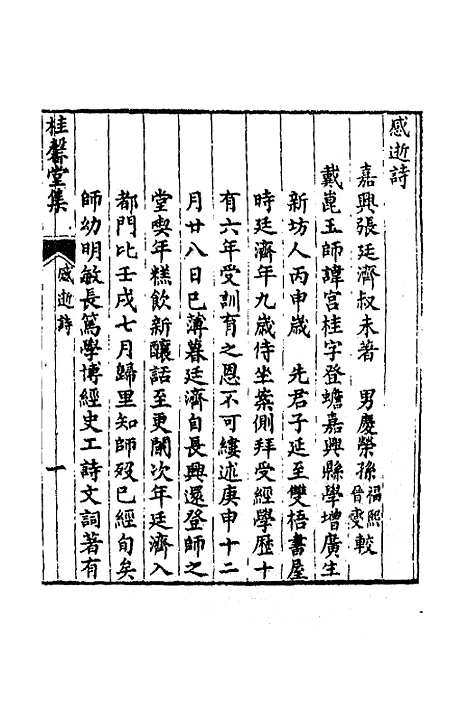 感逝詩
嘉興張廷濟叔未著　男慶榮孫福熙晉燮較
戴崑玉師諱宫桂字登蟾嘉興縣學增廣生
新坊人丙申歲　先君子延至雙梧書屋
時廷濟年九歲侍坐案側拜受經學歷十
有六年受訓育之恩不可縷述庚申十二
月廿八日已薄暮廷濟自長興還登師之
堂喫年糕飲新釀話至更闌次年廷濟入
都門比壬戌七月歸里知師歿已經旬矣
師幼明敏長篤學博經史工詩文詞著有
桂馨堂集　感逝詩　一